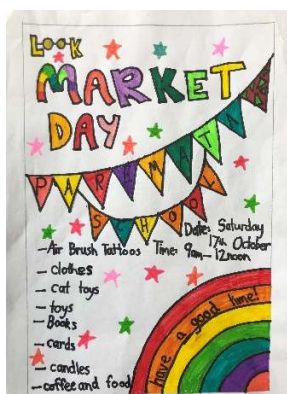 LOOK
MARKET
DAY
PAREMATA
SCHOOL
Date: Saturday
17th October
Time: 9am - 12noon
- Air Brush Tattoos
- clothes
- cat toys
- toys
- Books
- cards
- candles
- coffee and food
have a good time!